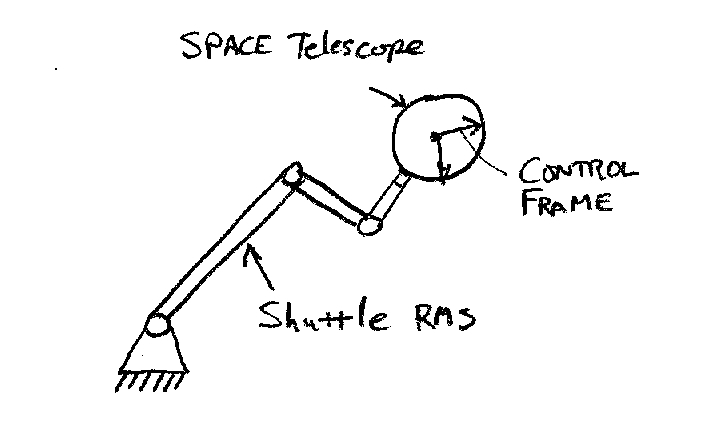 SPACE Telescope
CONTROL
FRAME
Shuttle RMS